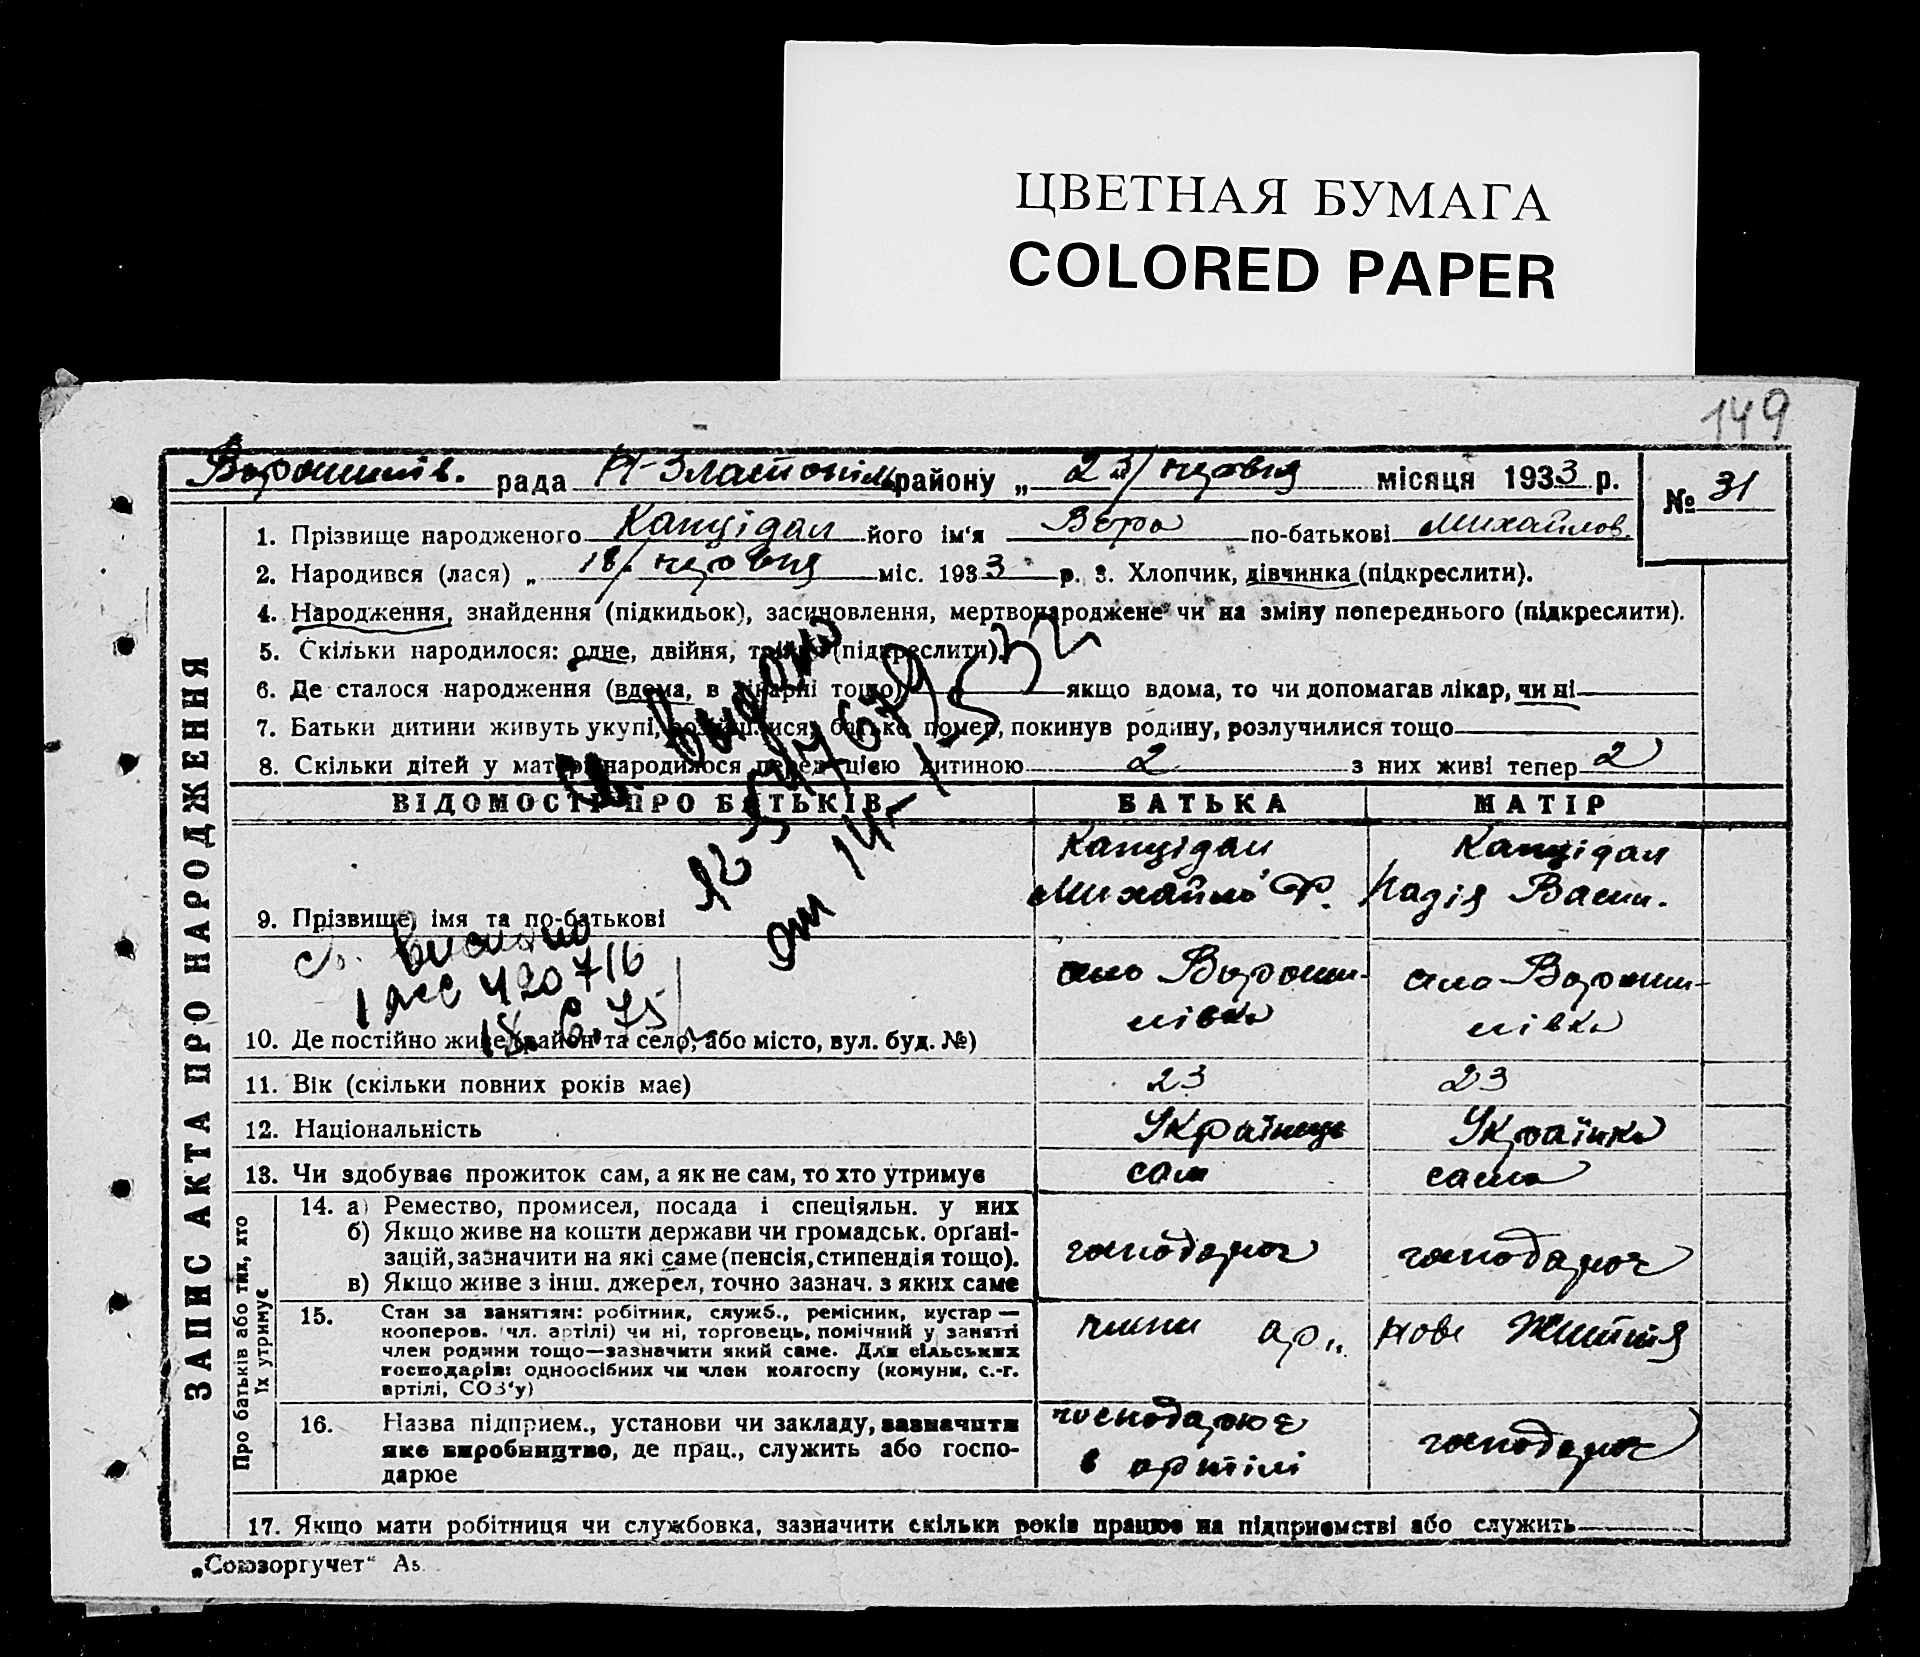 ЦВЕТНАЯ БУМАГА
COLORED PAPER
149
Ворошилів. рада Н-Златопіль району „ 23/ червня місяця 1933 р.
№ 31
ЗАПИС АКТА ПРО НАРОДЖЕННЯ
1. Прізвище народженого Капцідал його ім'я Вера по-батькові Михайлов.
2. Народився (лася) „ 18/ червня міс. 1933 р. 3. Хлопчик, дівчинка (підкреслити).
4. Народження, знайдення (підкидьок), засиновлення, мертвонароджене чи на зміну попереднього (підкреслити).
5. Скільки народилося: одне, двійня, трійня (підкреслити).
6. Де сталося народження (вдома, в лікарні тощо) якщо вдома, то чи допомагав лікар, чи ні
7. Батьки дитини живуть укупі, розійшлися, батько помер, покинув родину, розлучилися тощо
8. Скільки дітей у матері народилося перед цією дитиною 2 з них живі тепер 2
видано
№ 547679
дт 14-1-1952
ВІДОМОСТІ ПРО БАТЬКІВ БАТЬКА МАТІР
9. Прізвище, імя та по-батькові
Капцідал
Михайло Ф.
Капцідал
Надія Васил.
св. выслано
420716
18.6.75
10. Де постійно живе (район та село, або місто, вул. буд. №)
село Вороши-
лівка
село Вороши-
лівка
11. Вік (скільки повних років має) 23 23
12. Національність Українець Українка
13. Чи здобуває прожиток сам, а як не сам, то хто утримує сам сама
Про батьків або тих, хто
їх утримує
14. а) Ремество, промисел, посада і спеціяльн. у них
б) Якщо живе на кошти держави чи громадськ. орґані-
зацій, зазначити на які саме (пенсія, стипендія тощо).
в) Якщо живе з інш. джерел, точно зазнач. з яких саме
господарює господарює
15. Стан за заняттям: робітник, служб., ремісник, кустар —
кооперов. (чл. артілі) чи ні, торговець, помічний у занятті
член родини тощо—зазначити який саме. Для сільських
господарів: одноосібних чи член колгоспу (комуни, с.-г.
артілі, СОЗ'у)
члени ар. Нове Життя
16. Назва підприєм., установи чи закладу, зазначити
яке виробництво, де прац., служить або госпо-
дарює
господарює
в артілі
господарює
17. Якщо мати робітниця чи службовка, зазначити скільки років працює на підприємстві або служить
„Союзоргучет“